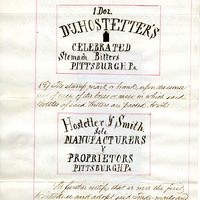 1 Doz.
DR. J. HOSTETTER'S
CELEBRATED
Stomach Bitters
PITTSBURGH. Pa.
stamp, mark or brand, upon the
of each of the boxes or in which said
bottles of said bitters are packed, to wit:
Hostetter & Smith,
Sole
MANUFACTURERS
&
PROPRIETORS
PITTSBURGH. Pa.
further certify that at was the first
and adopt said Trade mark and